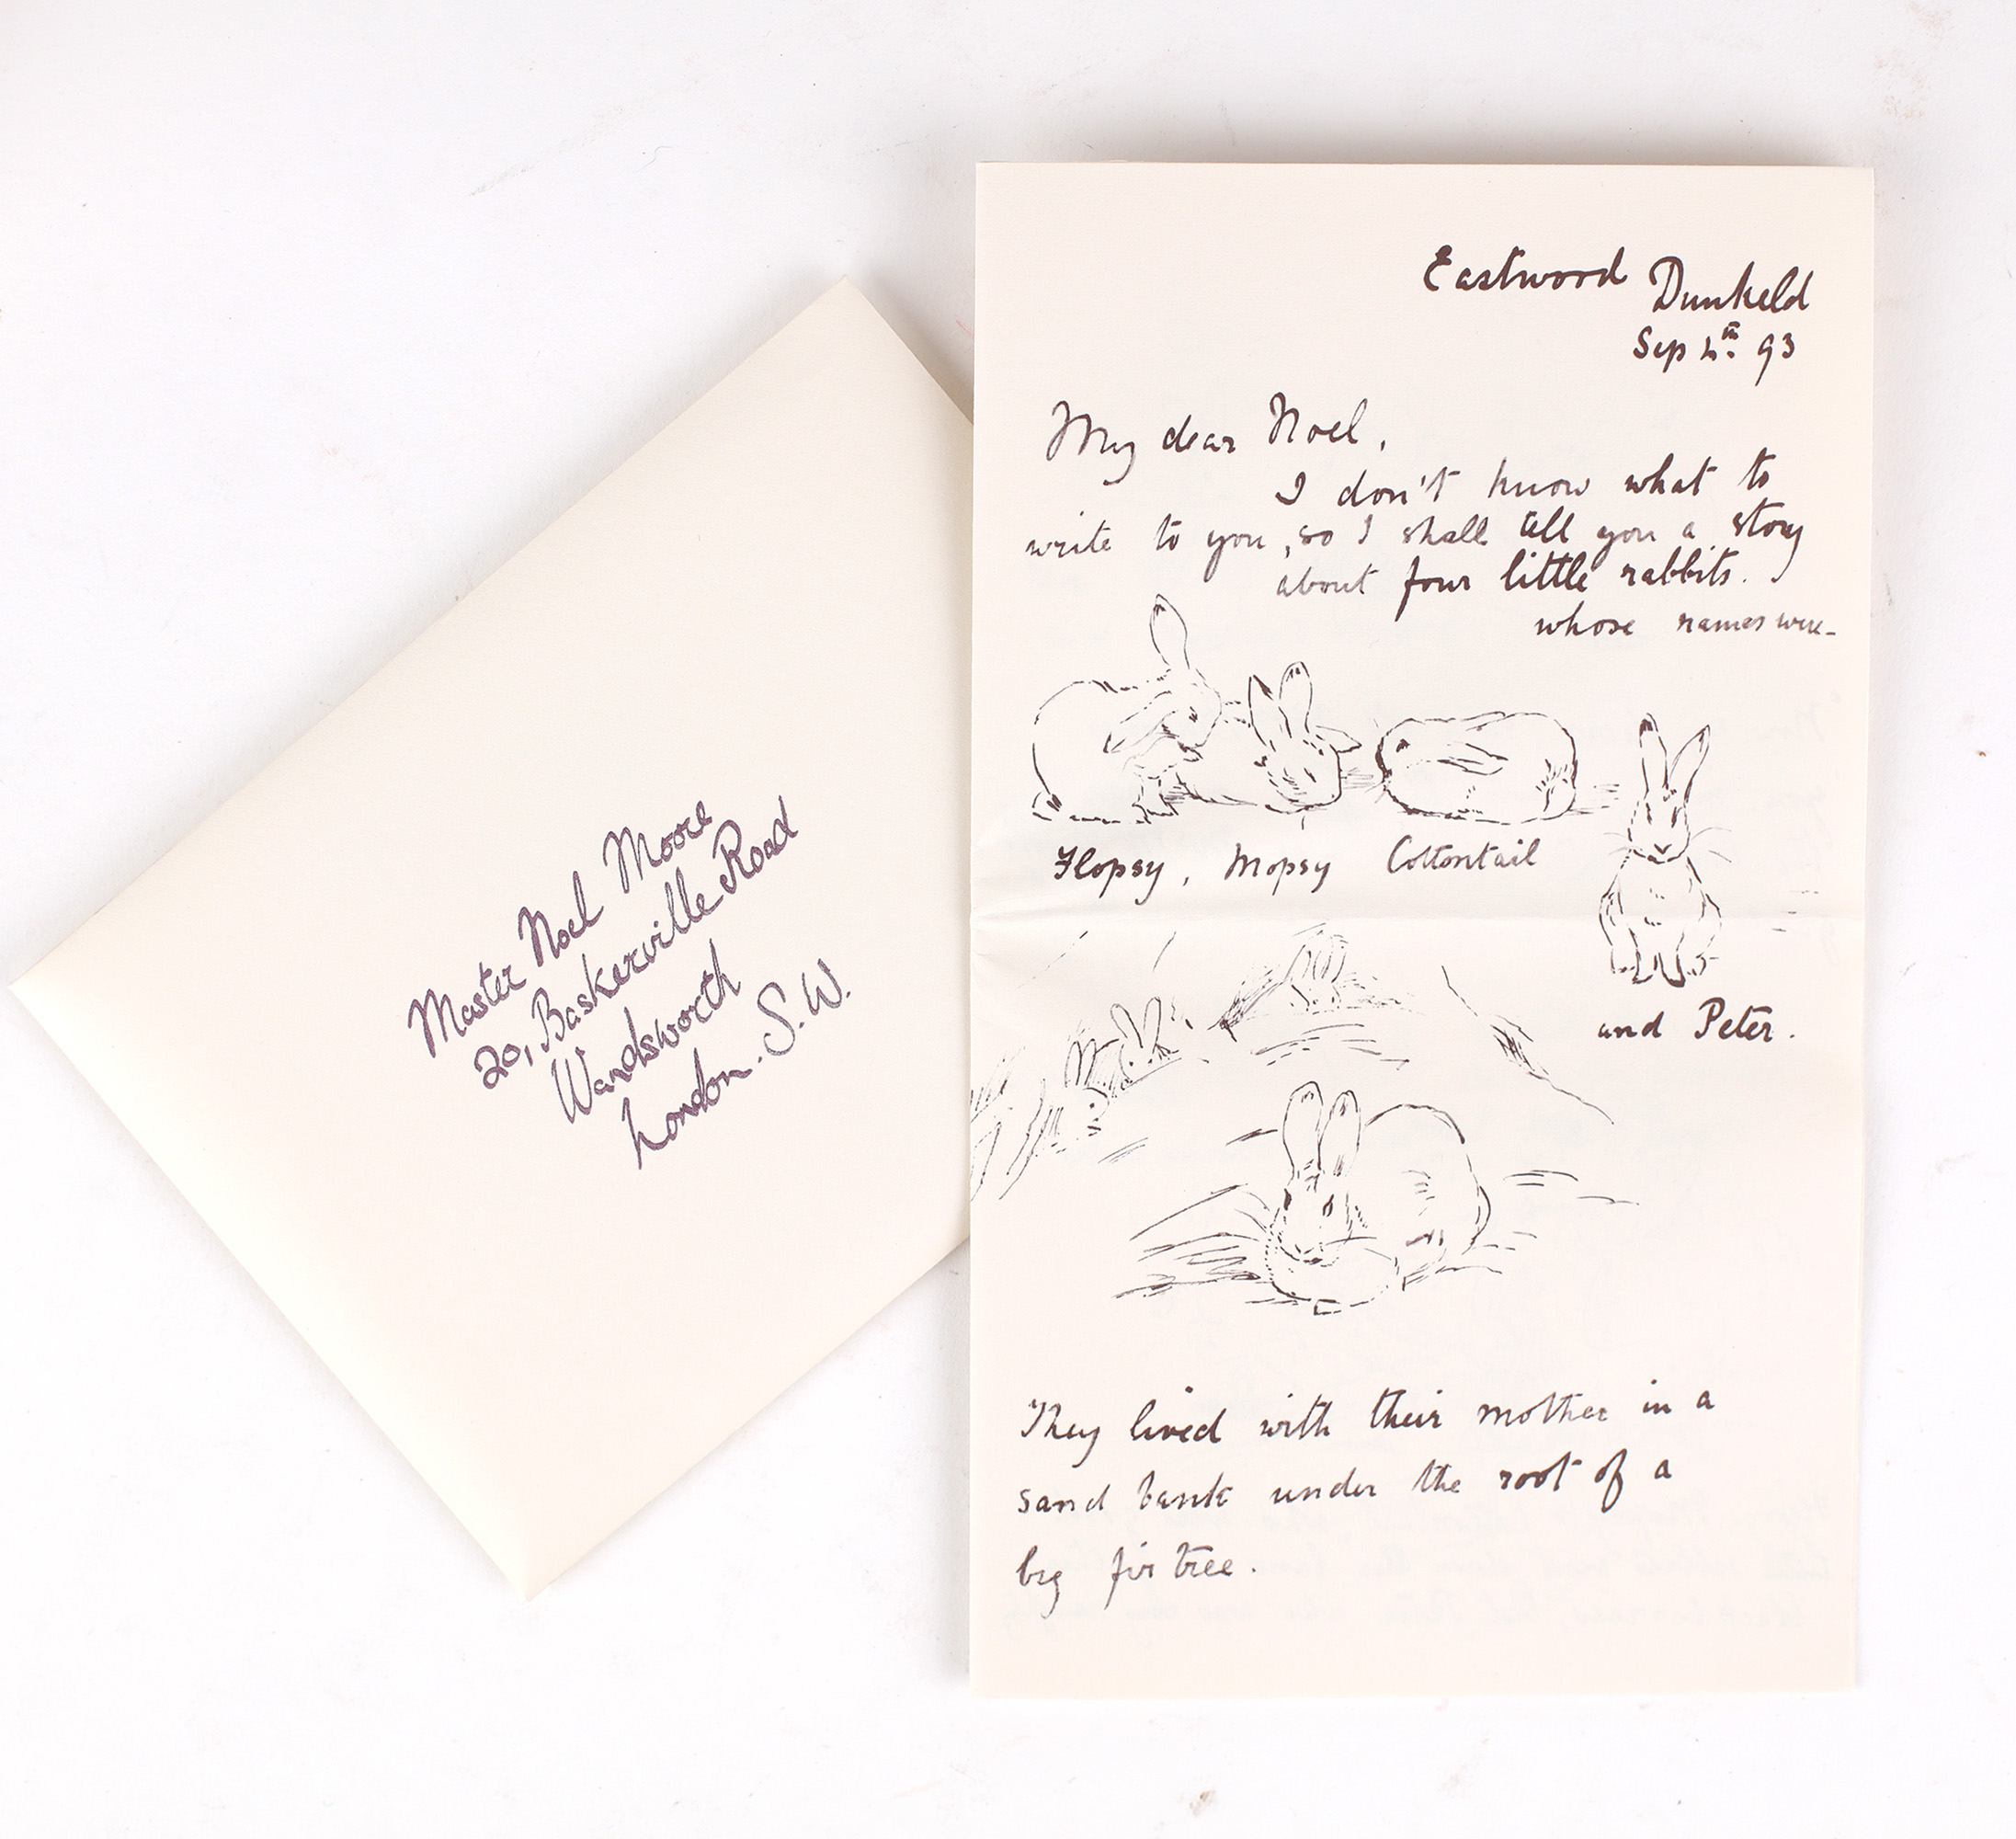 Master Noel Moore
20, Baskerville Road
Wandsworth
London. S.W.
Eastwood Dunkeld
Sep 4th 93
My dear Noel,
I don't know what to
write to you, so I shall tell you a story
about four little rabbits.
whose names were-
Flopsy, Mopsy Cottontail
and Peter.
They lived with their mother in a
sand bank under the root of a
big fir tree.